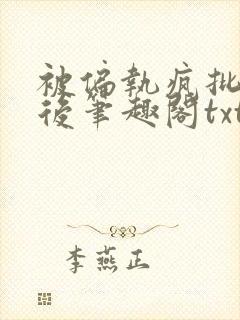 被偏執疯批
後筆趣閣txt
李燕正